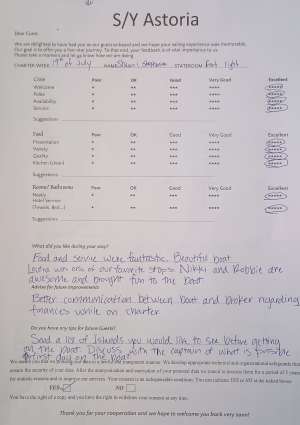 S/Y Astoria
Dear Guest,
We are delighted to have had you as our guest on board and we hope your sailing experience was memorable.
Our goal is to offer you a five-star journey. To that end, your feedback is of vital importance to us
Please take a moment and let us know how we are doing
CHARTER WEEK 19th of July NAME STATEROOM Port right
Crew Poor OK Good Very Good Excellent
Welcome * ** *** **** *****
Polite * ** *** **** *****
Availability * ** *** **** *****
Service * ** *** **** *****
Suggestions
Food Poor OK Good Very Good Excellent
Presentation * ** *** **** *****
Variety * ** *** **** *****
Quality * ** *** **** *****
Kitchen (clean) * ** *** **** *****
Suggestions
Rooms/ Bathrooms Poor OK Good Very Good Excellent
Neatly * ** *** **** *****
Hotel Service
(Towels, Bed...) * ** *** **** *****
Suggestions
What did you like during your stay?
Food and service were fantastic. Beautiful boat
was one of our favorite stops. Nikki and Robbie are
awesome and bought fun to the boat
Advise for future improvements
Better communication between boat and broker regarding
finances while on charter
Do you have any tips for future Guests?
Send a list of Islands you would like to see before getting
on the boat. Discuss with the captain of what is possible
first day on the boat
YES NO
You have the right of a copy and you have the right to withdraw your consent at any time.
Thank you for your cooperation and we hope to welcome you back very soon!